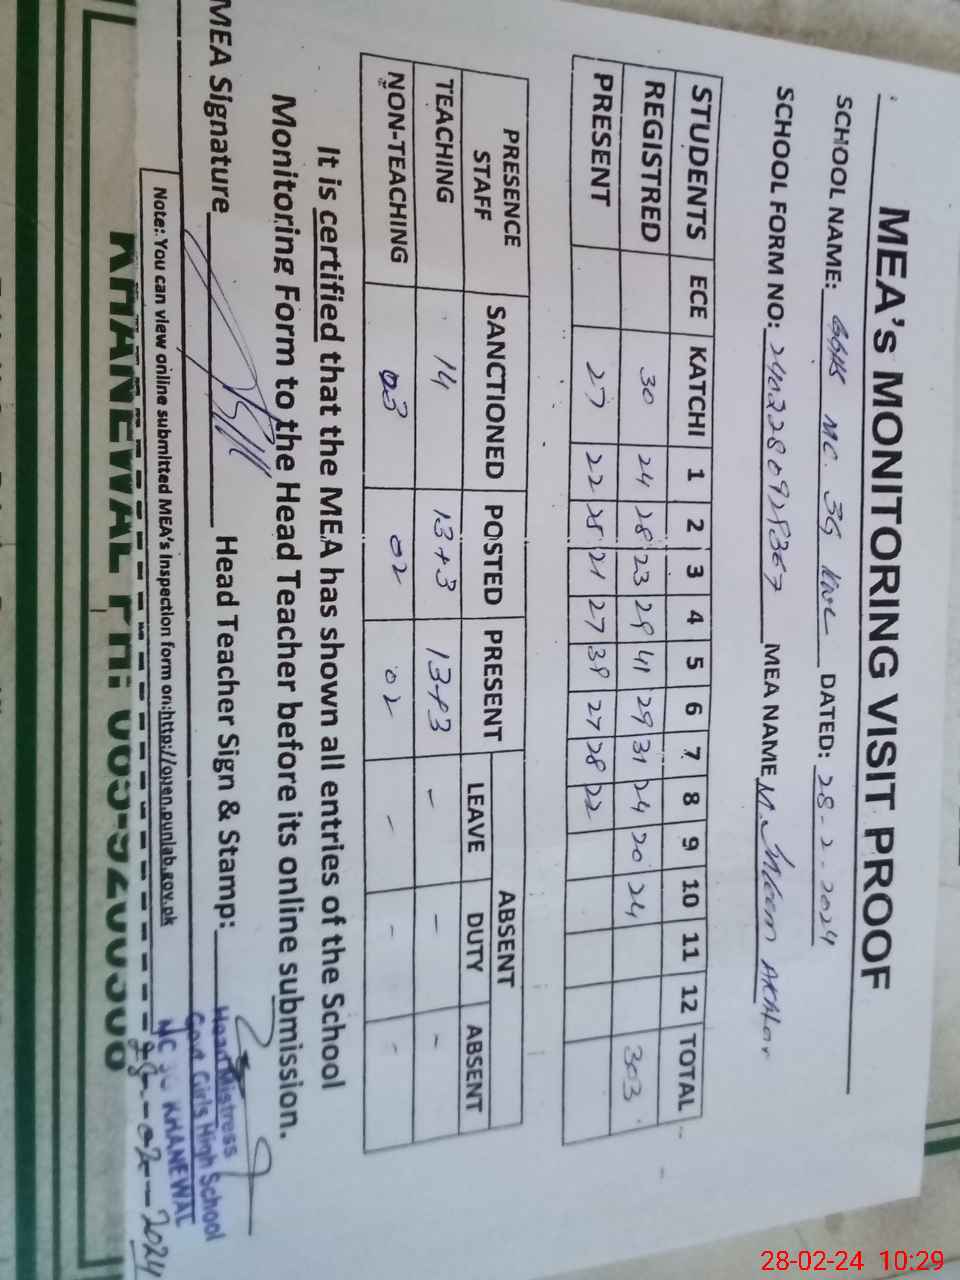 MEA's MONITORING VISIT PROOF
SCHOOL NAME: GGHS MC. 3G KWL DATED: 28-2-2024
SCHOOL FORM NO: 240228092836 MEA NAME M. Akhtar
STUDENTS ECE KATCHI 1 2 3 4 5 6 7 8 9 10 11 12 TOTAL
REGISTRED 30 24 28 23 29 41 29 31 24 20 24 303
PRESENT 27 22 25 21 27 39 27 28 22
PRESENCE STAFF SANCTIONED POSTED PRESENT ABSENT
LEAVE DUTY ABSENT
TEACHING 14 13+3 13+3 - - -
NON-TEACHING 03 02 02 - - -
It is certified that the MEA has shown all entries of the School
Monitoring Form to the Head Teacher before its online submission.
MEA Signature Head Teacher Sign & Stamp:
Head Mistress
Govt. Girls High School
MC 3G KHANEWAL
28-02-2024
Note: You can view online submitted MEA's Inspection form on:http://open.punjab.gov.pk
KHANEWAL PH: 065-9200308
28-02-24 10:29